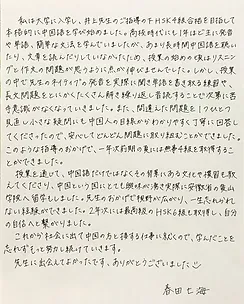 私は大学に入学し、井上先生のご指導の下HSK4級合格を目指して
本格的に中国語を学び始めました。高校時代にも1年ほど主に発音
や単語、簡単な文法を学んでいましたが、あまり長時間中国語を聴い
たり、文章を読んだりしていなかったため、授業の始めの頃はリスニン
グと作文の問題が思うように点が伸びませんでした。しかし、授業
の中で先生のネイティブの発音を実際に聞き単語を書き取る練習や、
長文問題をとにかくたくさん解き繰り返し音読することで次第に苦
手意識がなくなっていきました。また、間違えた問題を1つひとつ
見直し小さな疑問にも中国人の目線からわかりやすく丁寧に回答し
てくださったので、安心してどんどん問題に取り組むことができました。
このような指導のおかげで、一年次前期の後には無事4級を取得するこ
とができました。
授業を通して、中国語だけではなくその背景にある文化や習慣も教
えてくださり、中国という国にとても興味が湧き実際に安徽省の黄山
学院へ留学もしました。先生のおかげで視野が広がり、一生忘れられ
ない経験ができました。2年次には最高級のHSK6級を取得し、自分
の自信へと繋がりました。
これから社会に出て中国の方と接する仕事に就くので、学んだことを
忘れずもっと努力し続けていきます。
先生に出会えてよかったです、ありがとうございました☺
春田七海